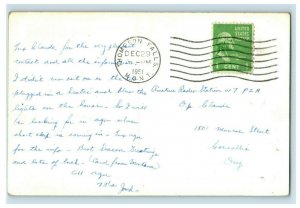 Thx Claude for the very pleasant
contact and all the information
I didn't run out on u. She
plugged in a heater and blew the
lights on the house. So I will
be looking for u again when
short skip is coming in - thx agn
for the info - Best Season Greetings
and lots of luck. (Card from Montana)
All agn
THOMPSON FALLS
DEC 29
1951
MONT.
UNITED STATES
1 CENT
Amateur Radio Station W7PGR
Op Claude
1801 Monroe Street
Corvallis
Oreg